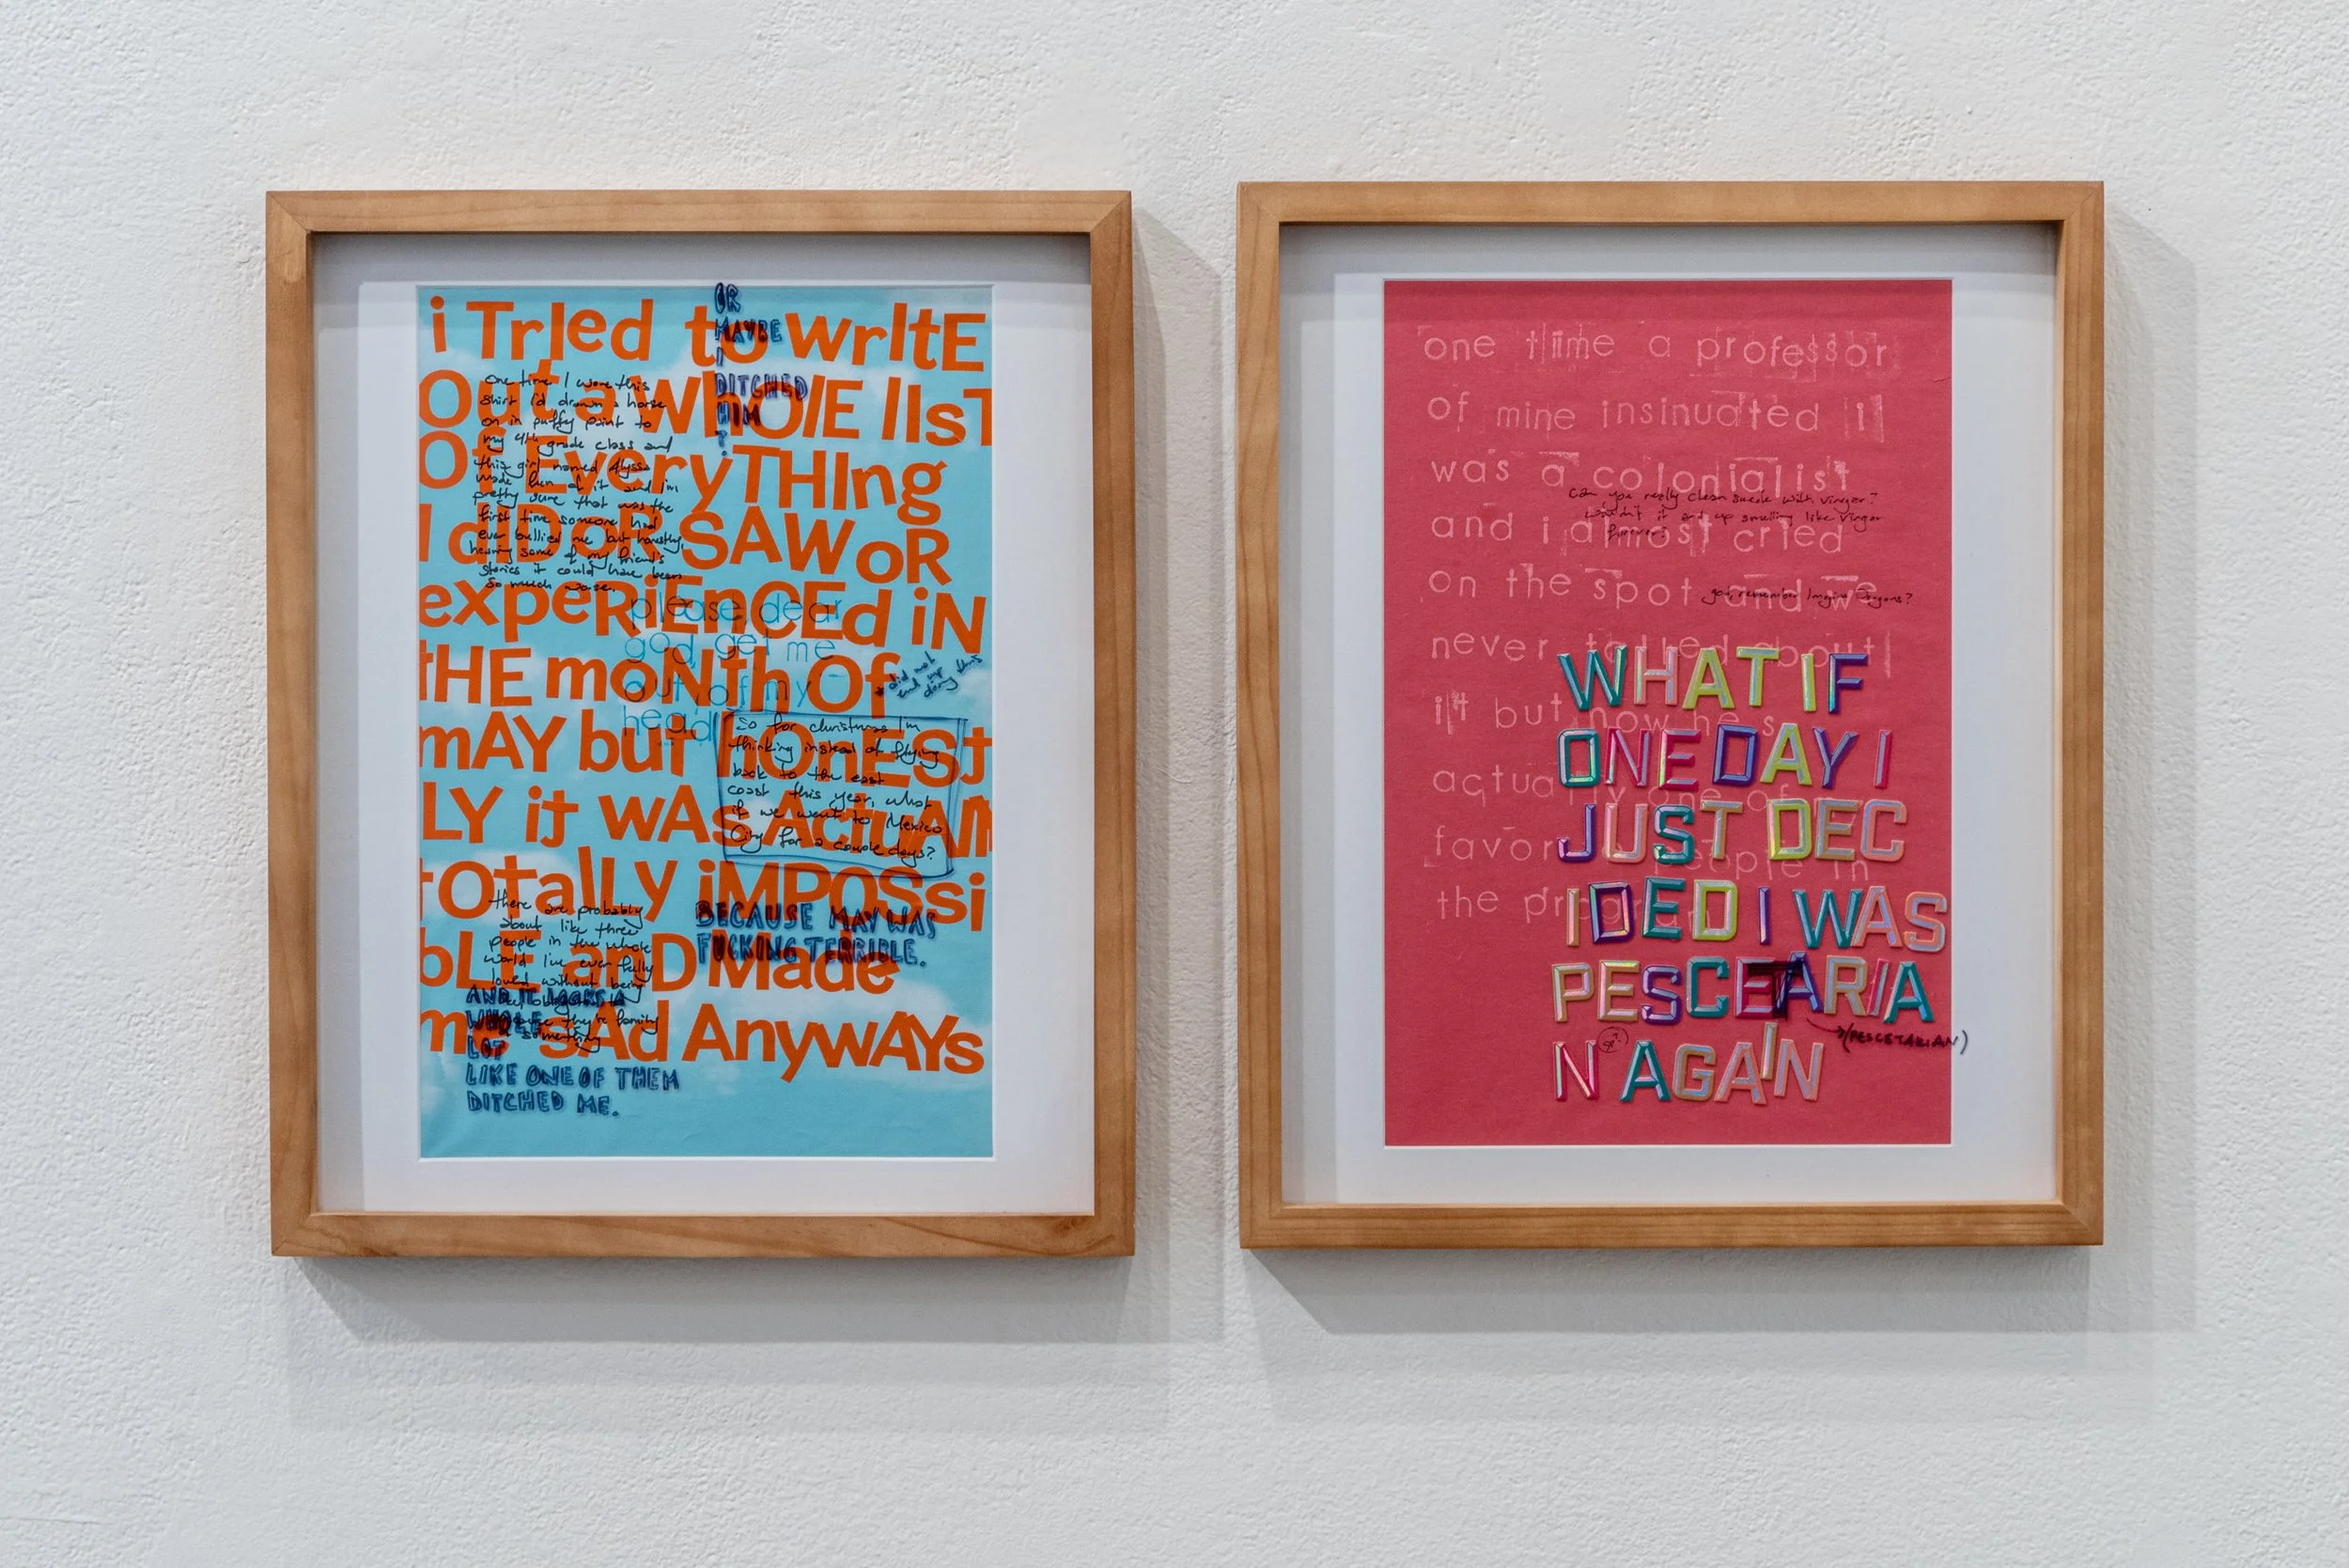 i TrIed to wrItE
Out a WhOlE lIsT
Of EveryTHIng
I dIDoR SAW oR
expeRiEnCEd iN
tHE moNth Of
mAY but hOnESt
LY it wAs ActuAl
tOtalLy iMPOSsi
bLE anD Made
me sAd AnywAYs
OR
MAYBE
I
DITCHED
HIM
?
One time I wore this
shirt I'd drawn a horse
on in puffy paint to
my 4th grade class and
this girl named Alyssa
made fun of it and I'm
pretty sure that was the
first time someone had
ever bullied me but honestly,
hearing some of my friend's
stories it could have been
so much worse.
please, dear
god, get me
out of my
head
did not
end up
doing this
so for christmas I'm
thinking instead of flying
back to the east
coast this year, what
if we went to Mexico
City for a couple days?
BECAUSE MAY WAS
FUCKING TERRIBLE.
there are probably
about like three
people in the whole
world I've ever fully
loved without being
they're family
or something
AND IT LOOKS A
WHOLE
LOT
LIKE ONE OF THEM
DITCHED ME.
one time a professor
of mine insinuated i
was a colonialist
and i almost cried
on the spot and we
never talked about
it but now he's
actually one of
favor people in
the program
Can you really clean suede with vinegar?
wouldn't it end up smelling like vingar
forever?
god, remember Imagine Dragons?
WHAT IF
ONE DAY I
JUST DEC
IDED I WAS
PESCETARIA
N AGAIN
(PESCETARIAN)